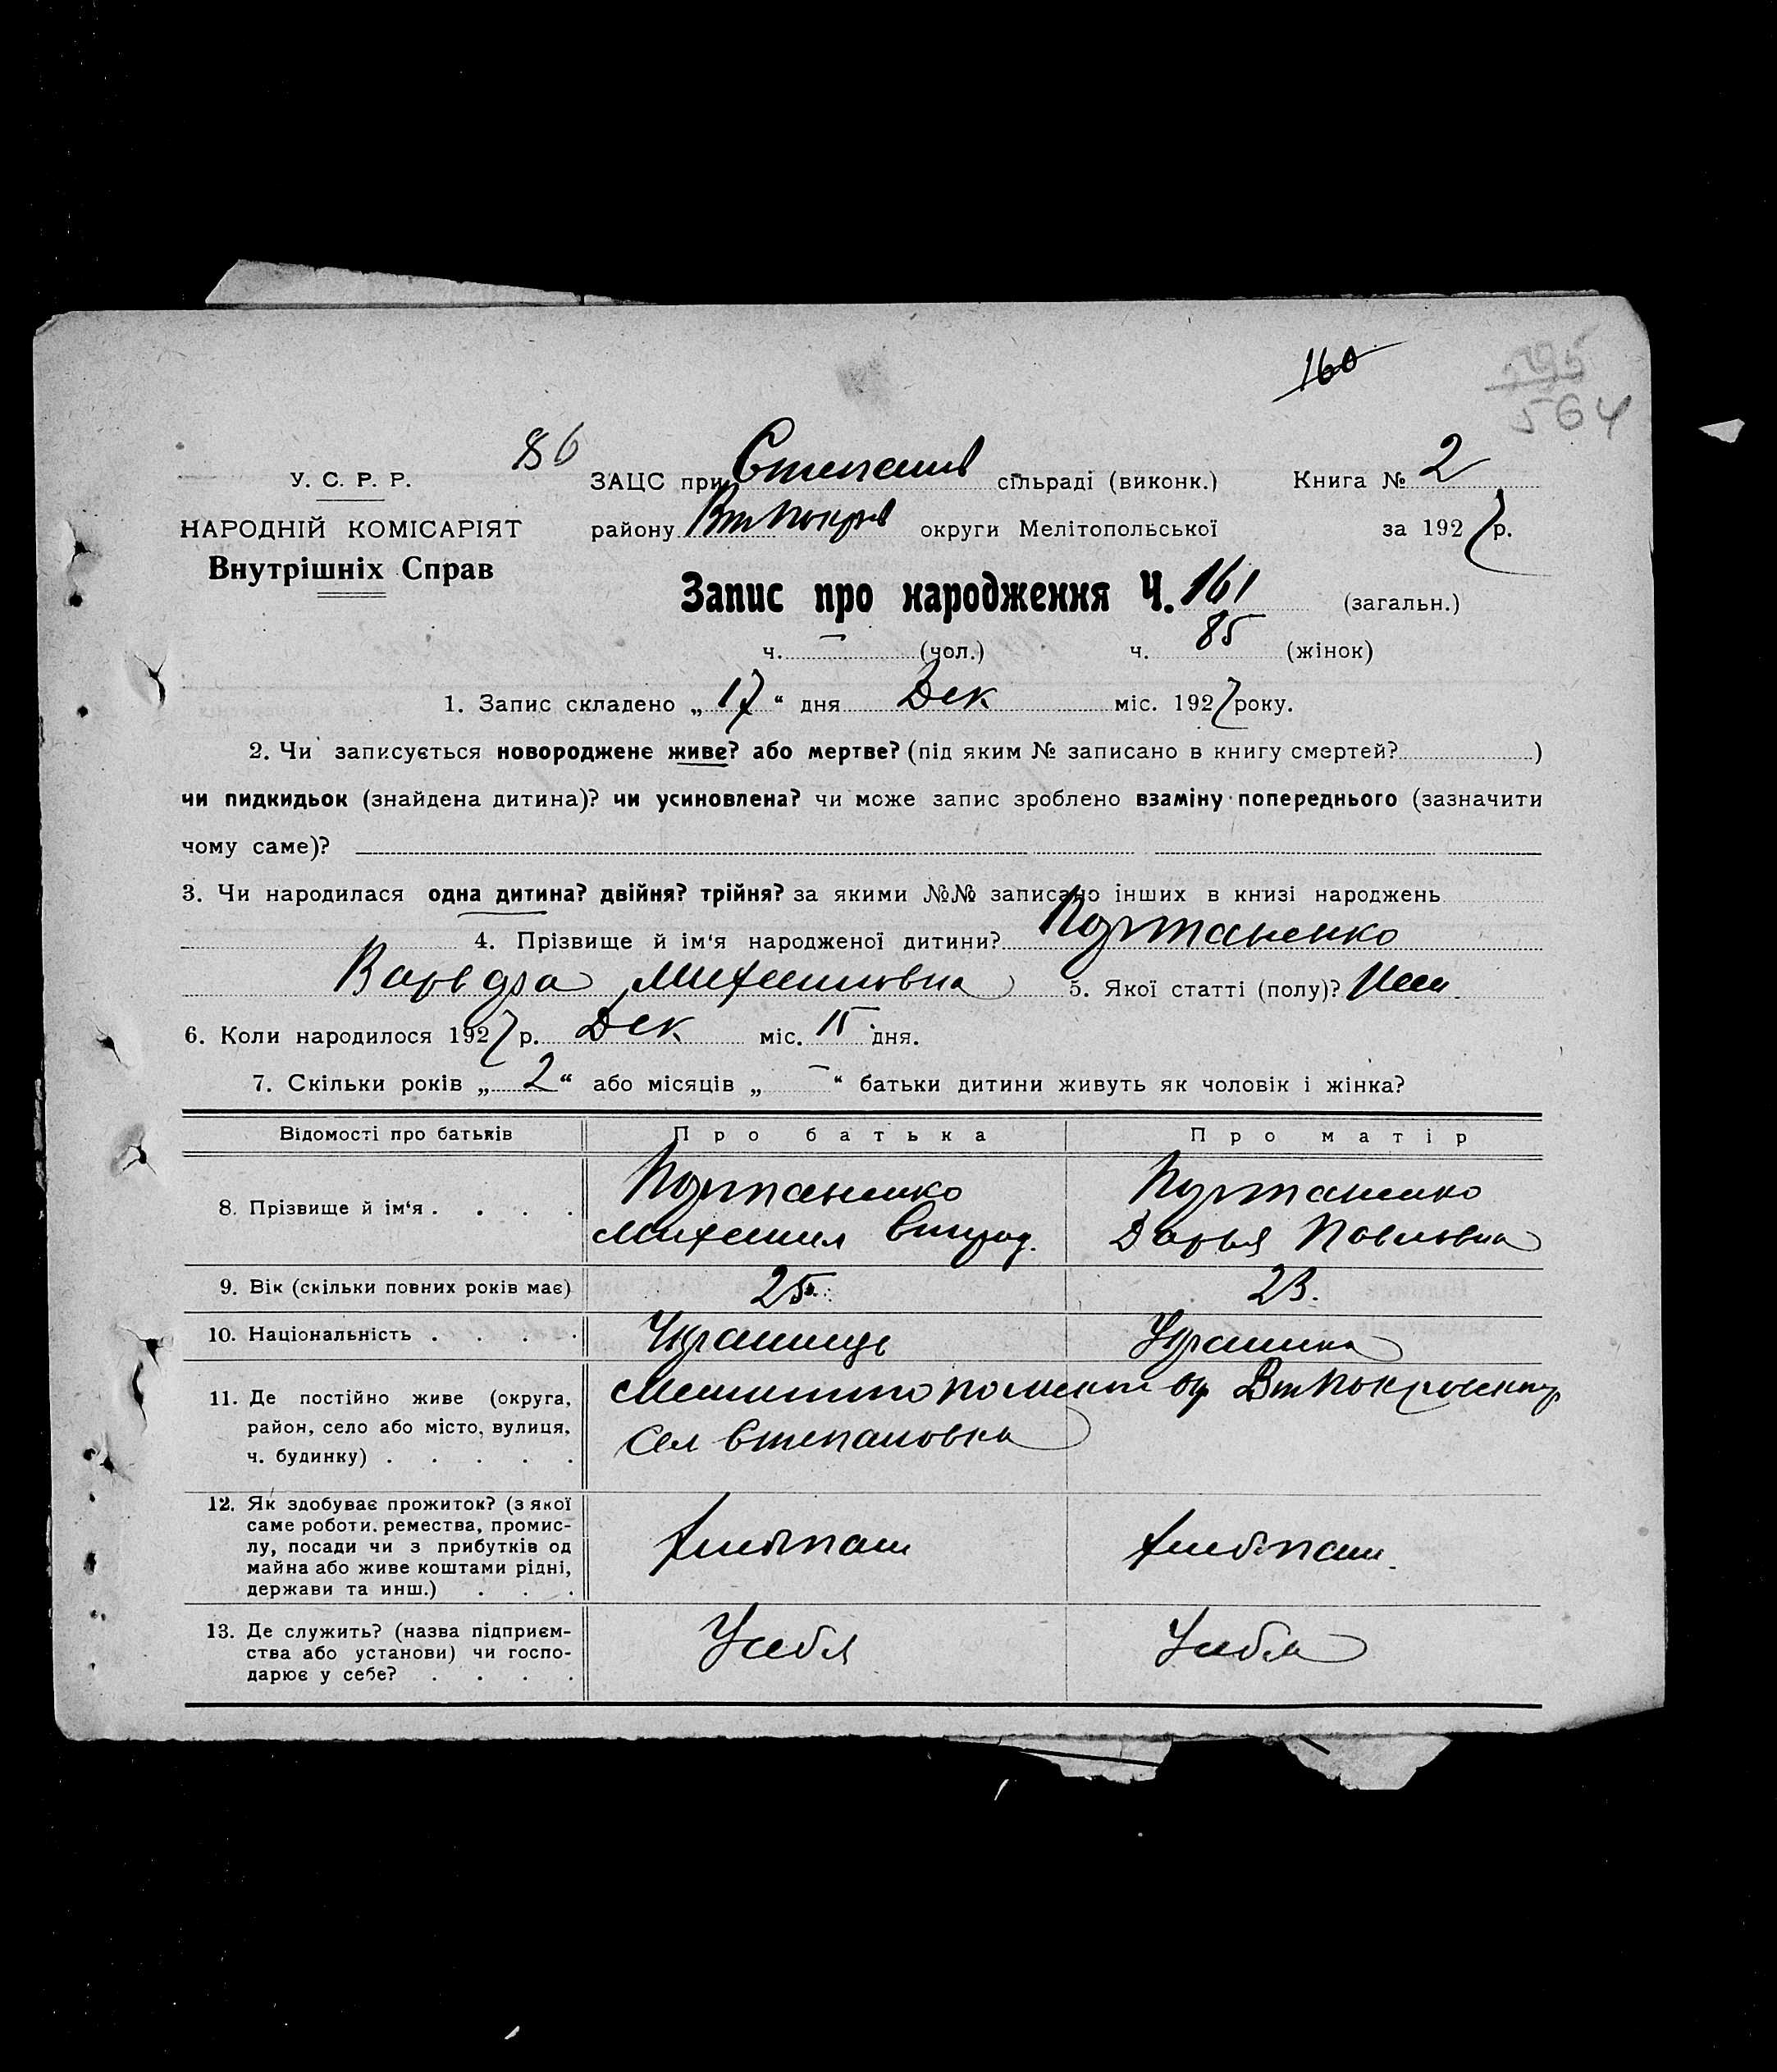 160
195
564
86
У. С. Р. Р.
ЗАЦС при Степанів сільраді (виконк.) Книга № 2
НАРОДНІЙ КОМІСАРІЯТ
району Вт Покров округи Мелітопольської за 1927 р.
Внутрішніх Справ
Запис про народження Ч. 161 (загальн.)
ч. — (чол.) ч. 85 (жінок)
1. Запис складено „ 17 “ дня Дек міс. 1927 року.
2. Чи записується новороджене живе? або мертве? (під яким № записано в книгу смертей? )
чи пидкидьок (знайдена дитина)? чи усиновлена? чи може запис зроблено взаміну попереднього (зазначити
чому саме)?
3. Чи народилася одна дитина? двійня? трійня? за якими №№ записано інших в книзі народжень
4. Прізвище й ім‘я народженої дитини?
Михаиловна 5. Якої статті (полу)? Жен.
6. Коли народилося 1927 р. Дек міс. 15 дня.
7. Скільки років „ 2 “ або місяців „ — “ батьки дитини живуть як чоловік і жінка?
Відомості про батьків
Про батька
Про матір
8. Прізвище й ім‘я . . . .
Михаил
Дарья Павловна
9. Вік (скільки повних років має)
25.
23.
10. Національність . . . .
Украинць
Украинка
11. Де постійно живе (округа,
район, село або місто, вулиця,
ч. будинку) . . . . .
Мелитопольской ок Вт Покровск р
Сел Степановка
12. Як здобуває прожиток? (з якої
саме роботи, ремества, промис-
лу, посади чи з прибутків од
майна або живе коштами рідні,
держави та инш.) . . .
хлебпаш
хлебпаш.
13. Де служить? (назва підприєм-
ства або установи) чи госпо-
дарює у себе? . . . .
У себя
У себя